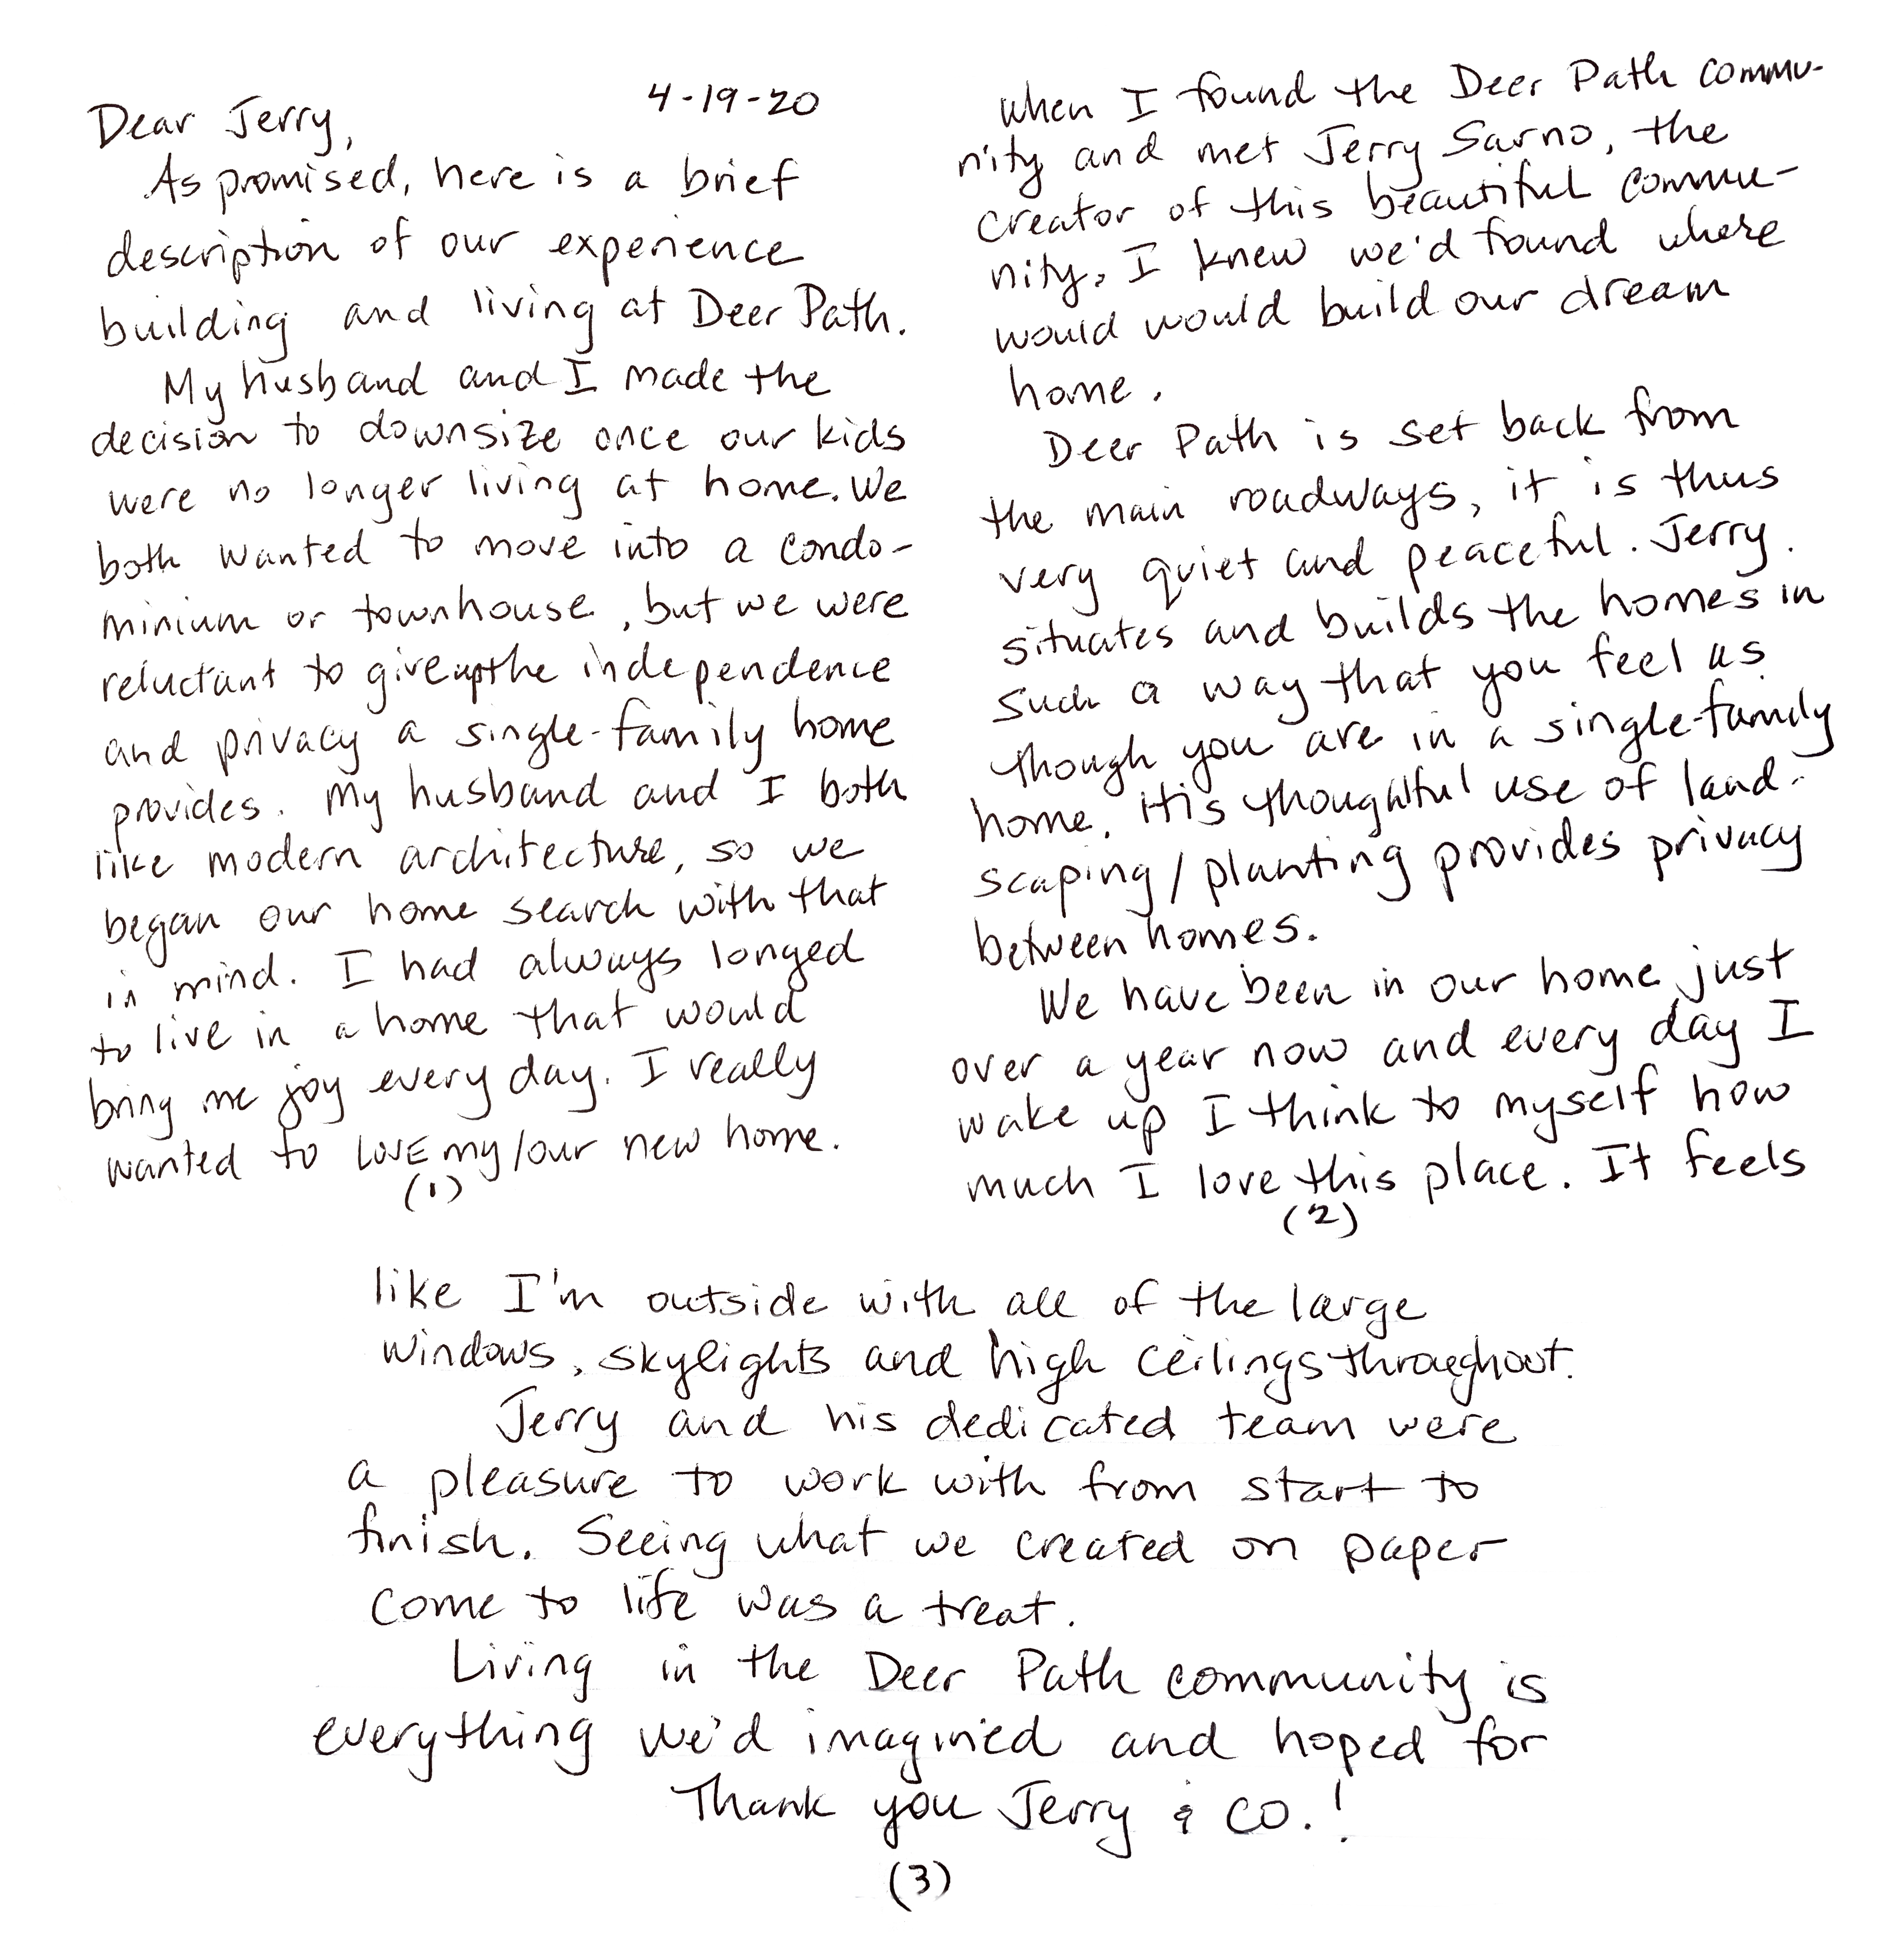 4-19-20
Dear Jerry,
As promised, here is a brief
description of our experience
building and living at Deer Path.
My husband and I made the
decision to downsize once our kids
were no longer living at home. We
both wanted to move into a condo-
minium or townhouse, but we were
reluctant to give up the independence
and privacy a single-family home
provides. My husband and I both
like modern architecture, so we
began our home search with that
in mind. I had always longed
to live in a home that would
bring me joy every day. I really
wanted to LOVE my/our new home.
(1)
When I found the Deer Path commu-
nity and met Jerry Sarno, the
creator of this beautiful commu-
nity, I knew we'd found where
would would build our dream
home.
Deer Path is set back from
the main roadways, it is thus
very quiet and peaceful. Jerry
situates and builds the homes in
such a way that you feel as
though you are in a single-family
home. His thoughtful use of land-
scaping/planting provides privacy
between homes.
We have been in our home just
over a year now and every day I
wake up I think to myself how
much I love this place. It feels
(2)
like I'm outside with all of the large
windows, skylights and high ceilings throughout.
Jerry and his dedicated team were
a pleasure to work with from start to
finish. Seeing what we created on paper
come to life was a treat.
Living in the Deer Path community is
everything we'd imagined and hoped for
Thank you Jerry & CO.!
(3)